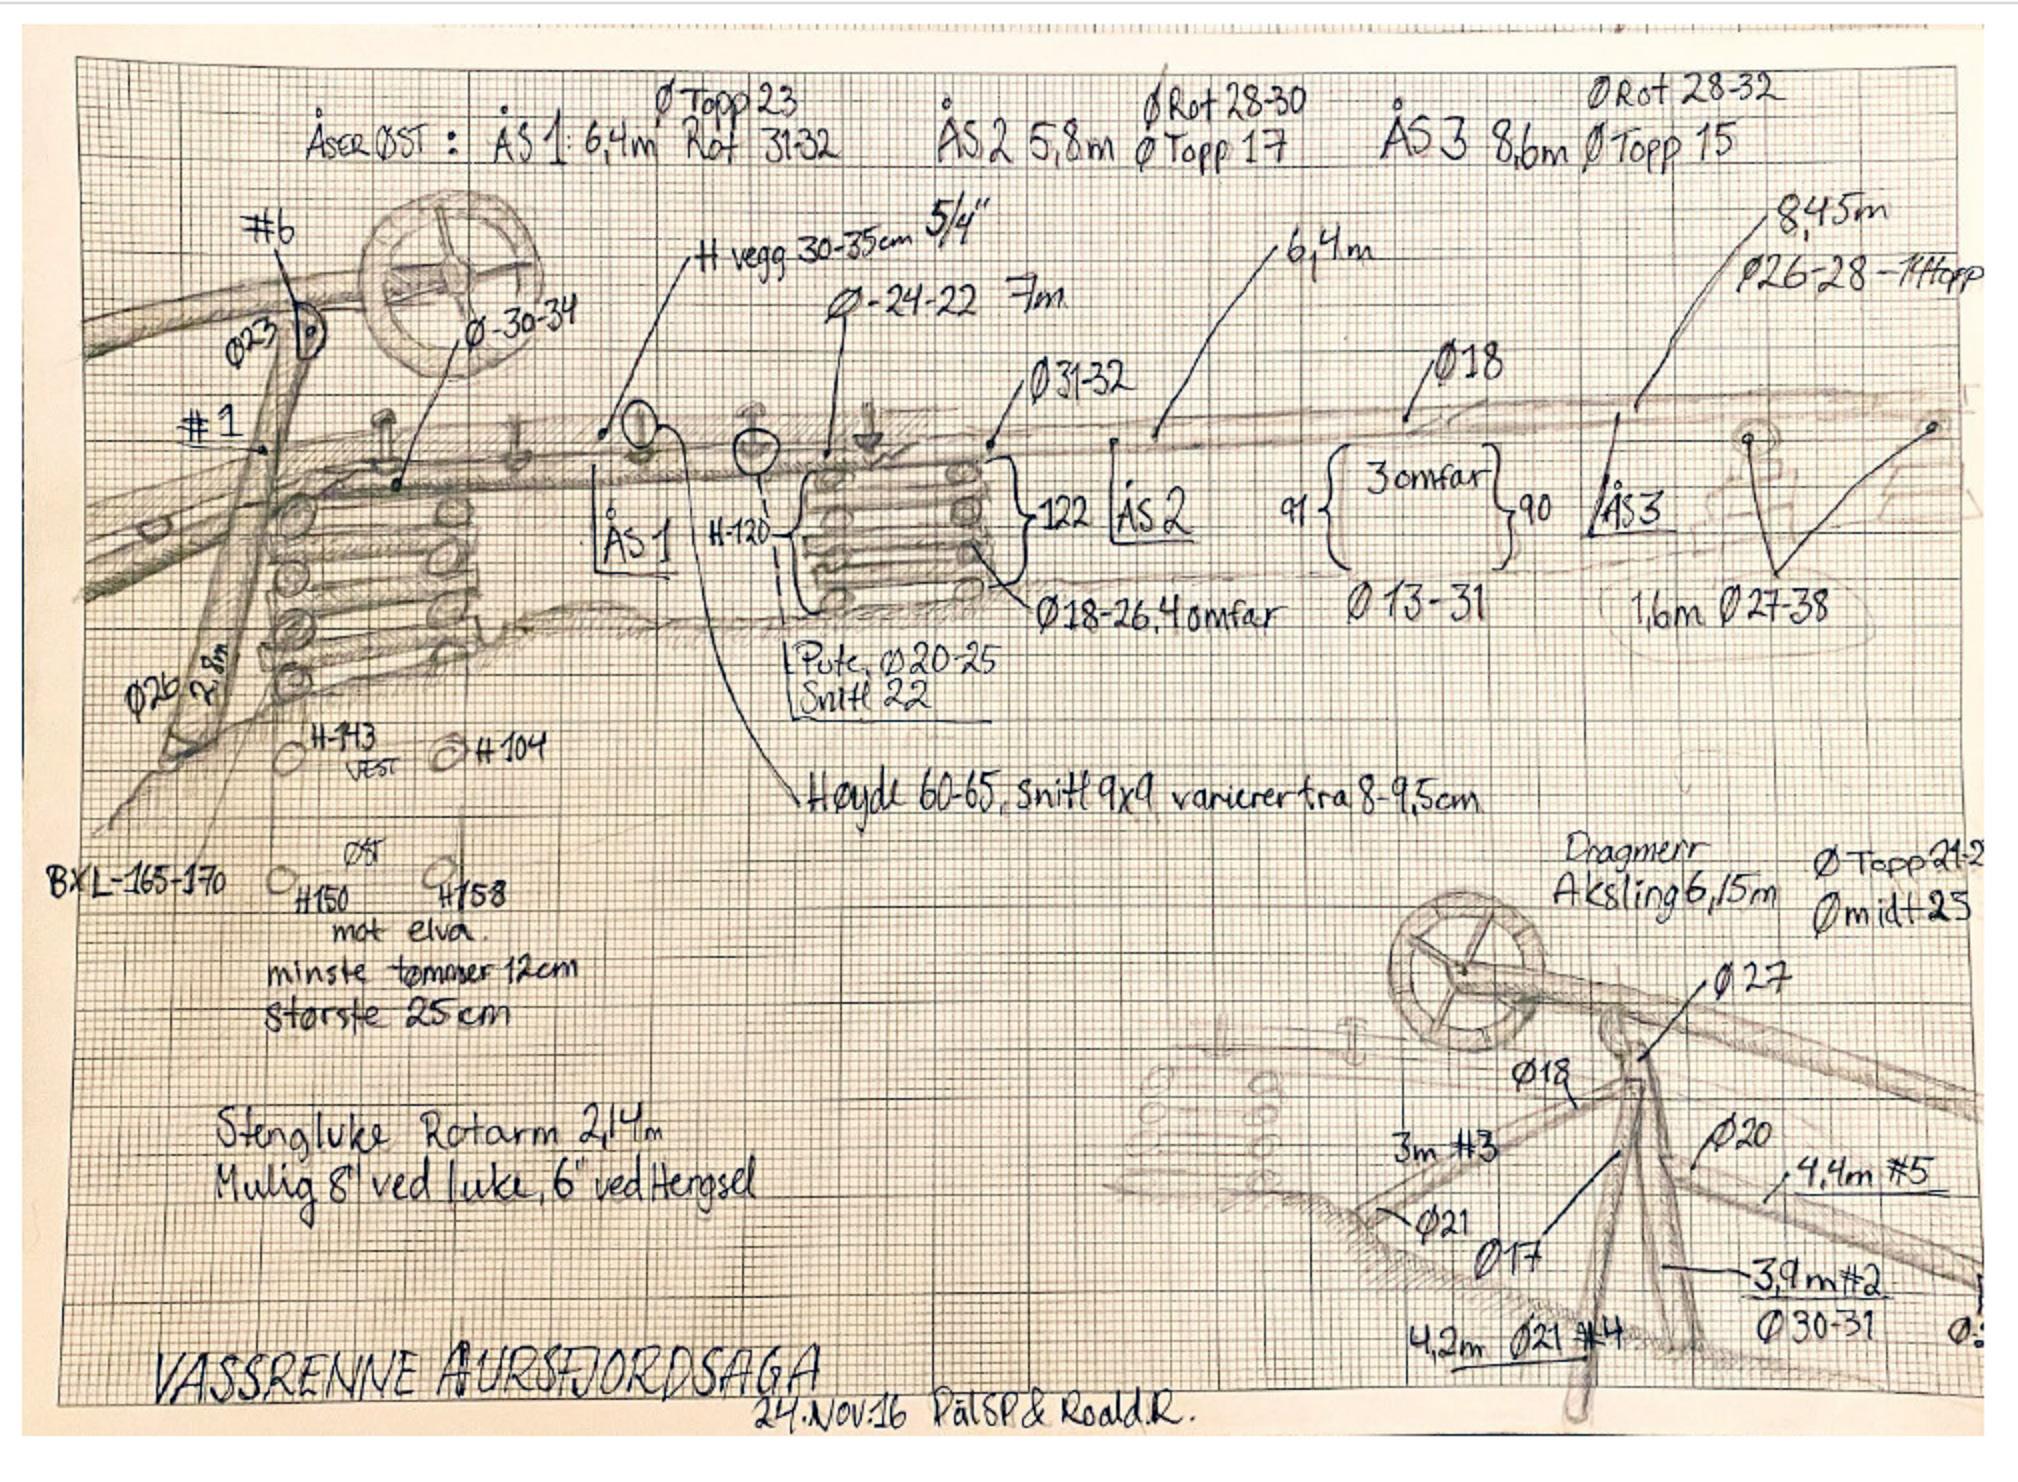 Ø Topp 23
Ø Rot 28-30
Ø Rot 28-32
ÅSER ØST: ÅS 1: 6,4m Rot 31-32
ÅS 2 5,8m Ø Topp 17
ÅS 3 8,6m Ø Topp 15
#6
H vegg 30-35cm 5/4"
6,4m
8,45m
Ø26-28-
Ø-24-22 7m
Ø23
Ø-30-34
Ø31-32
Ø18
#1
ÅS 1
H-120
122
ÅS 2
91
3 omfar
90
ÅS 3
Ø 13-31
1,6m Ø27-38
Ø18-26, 4 omfar
Pute, Ø20-25
Snitt 22
Ø26
2,8m
H-143
VEST
H 104
Høyde 60-65, snitt 9x9 varierer fra 8-9,5cm
BXL-165-170
ØST
H150
H158
mot elva.
minste tømmer 12cm
største 25cm
Dragmerr
Aksling 6,15m
Ø Topp 21-2
Ø midt 23
Ø27
Ø18
3m #3
Ø20
4,4m #5
Ø21
Ø17
3,9m #2
Ø30-31
4,2m Ø21 #4
Stengluke Rotarm 2,14m
Mulig 8" ved luke, 6" ved Hengsel
VASSRENNE AURSFJORDSAGA
24.NOV.16 PålSP & Roald.R.